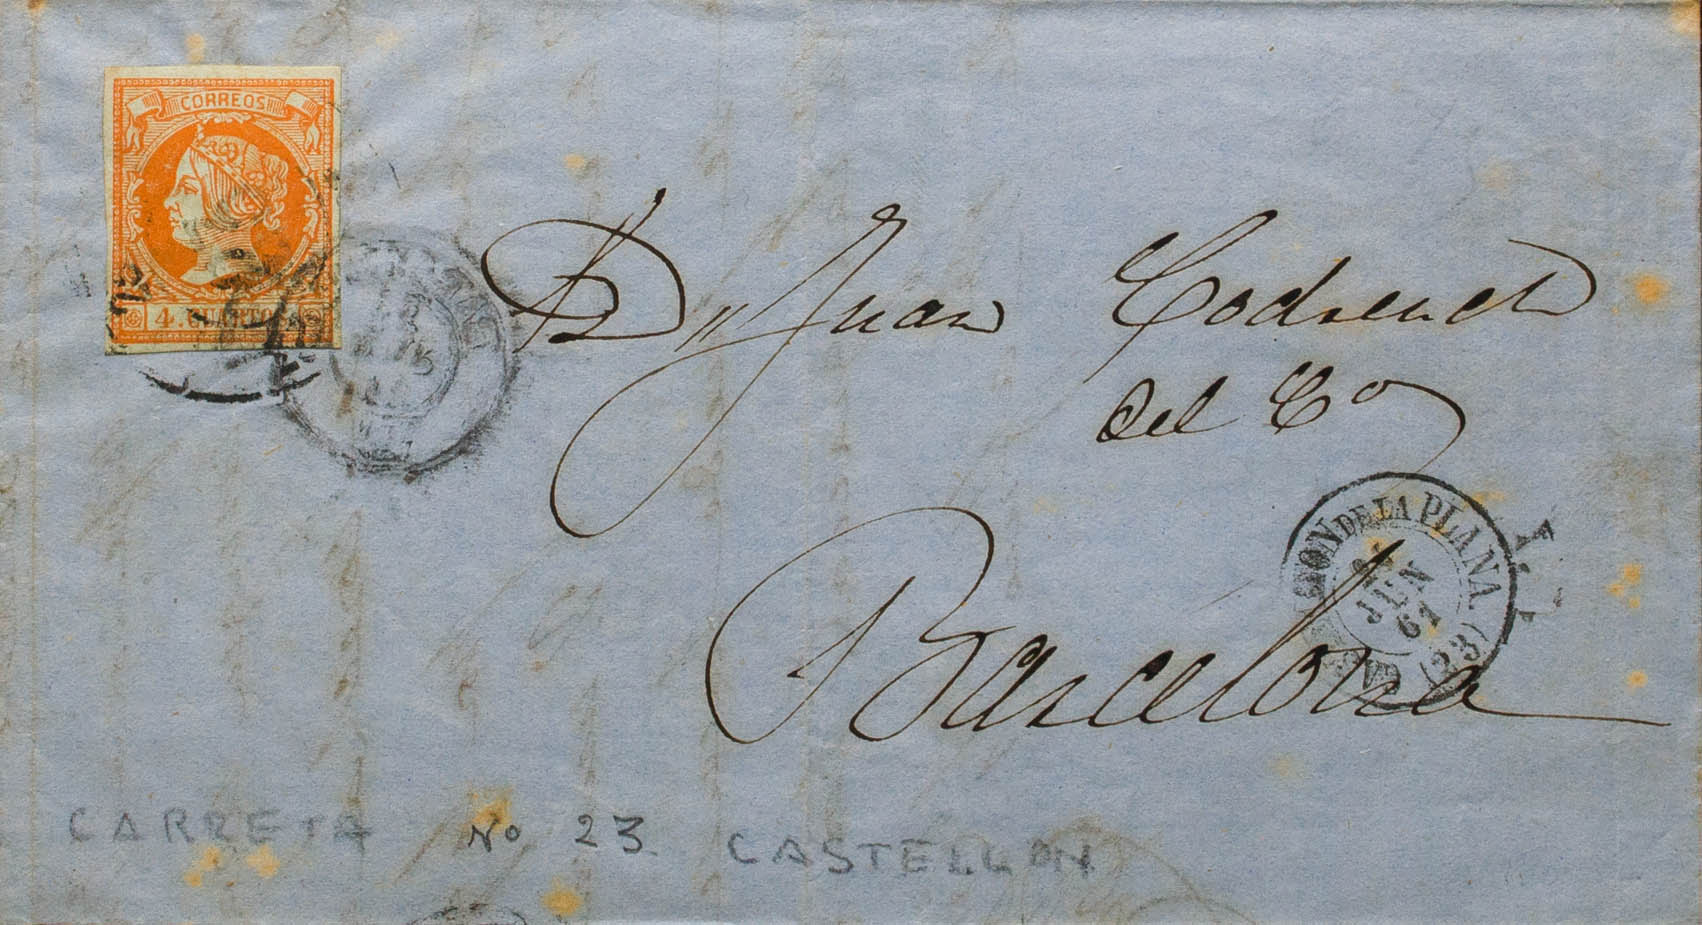 CORREOS
4. CUARTOS
D. Juan Codsench
del Cº
Barcelona
CASTELLON DE LA PLANA
JUN
61
(23)
CARRETA Nº 23 CASTELLON